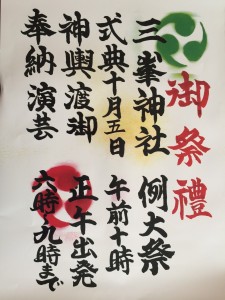 御祭禮
三峯神社 例大祭
式典十月五日 午前十時
神輿渡御 正午出発
奉納演芸 六時~九時まで